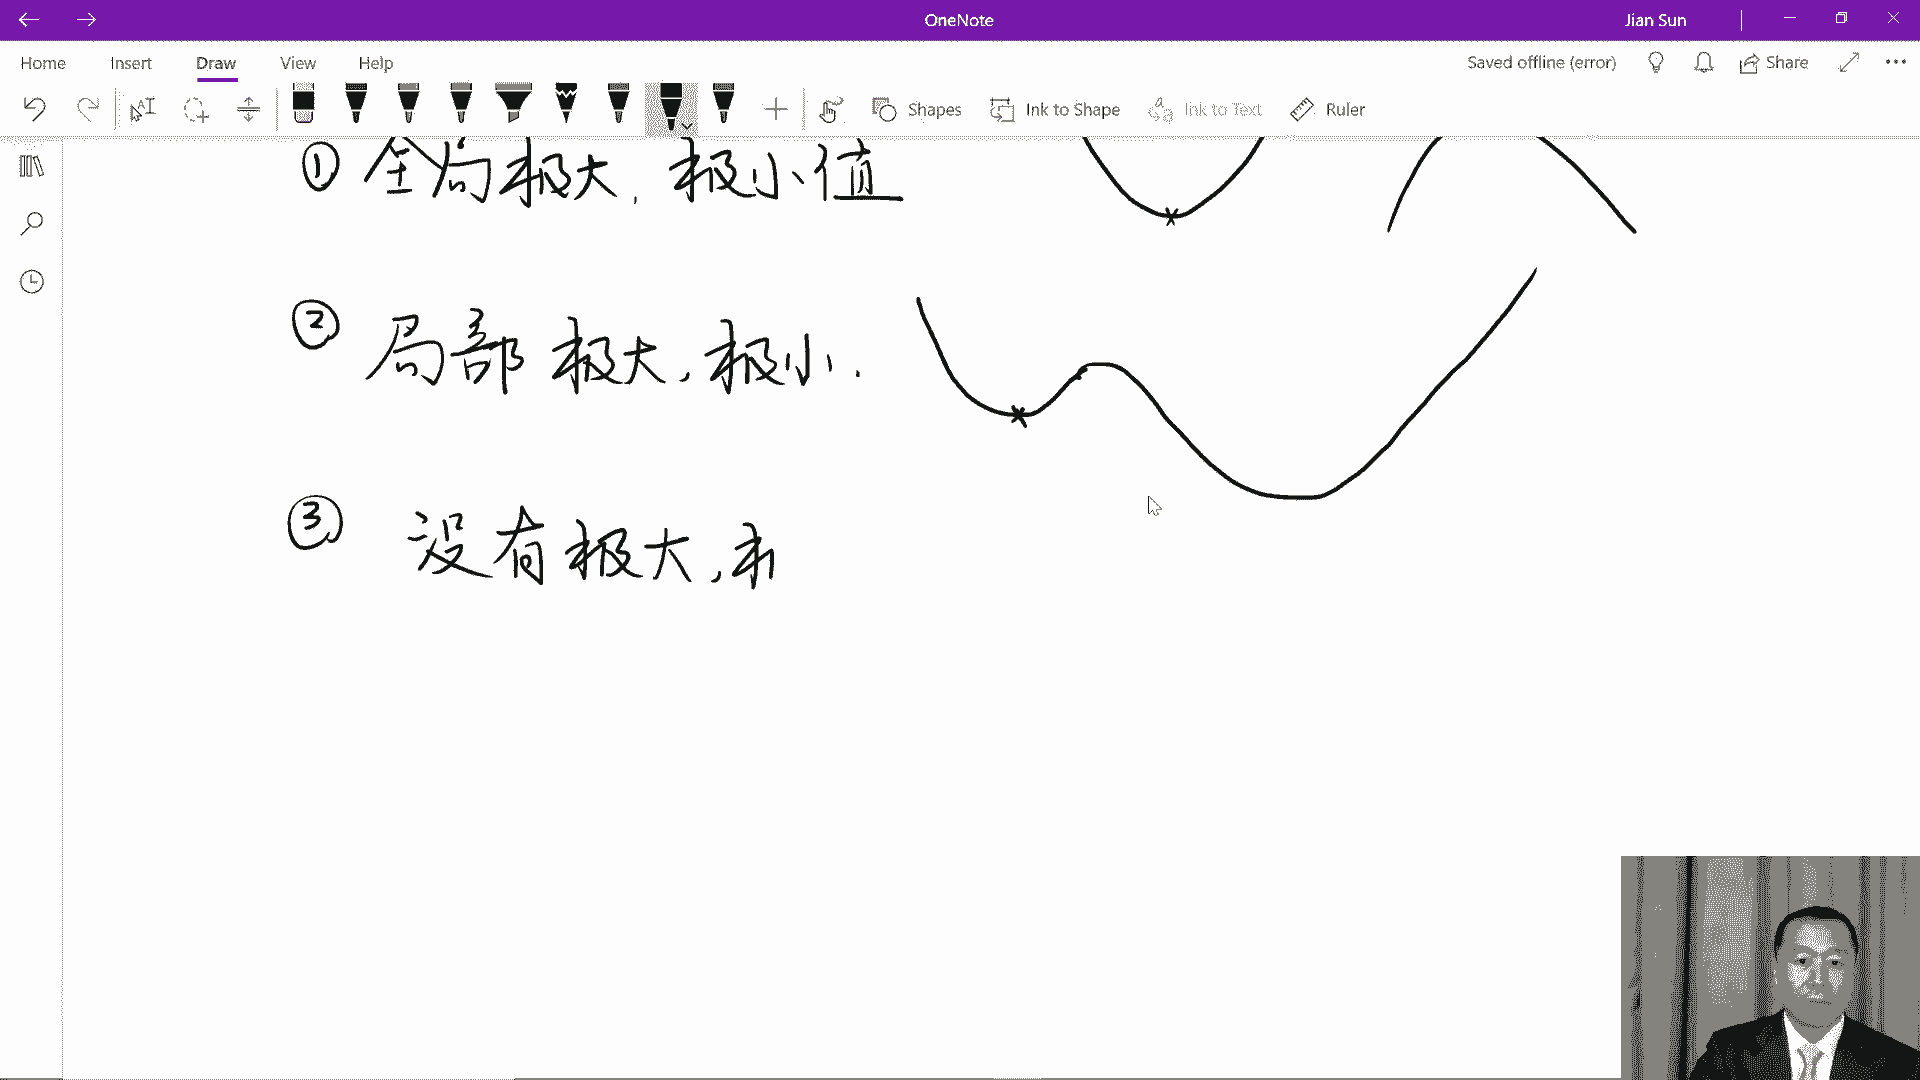 OneNote
Jian Sun
Home Insert Draw View Help
Saved offline (error)
Share
Shapes
Ink to Shape
Ink to Text
Ruler
① 全局极大, 极小值
② 局部极大, 极小.
③ 没有极大,